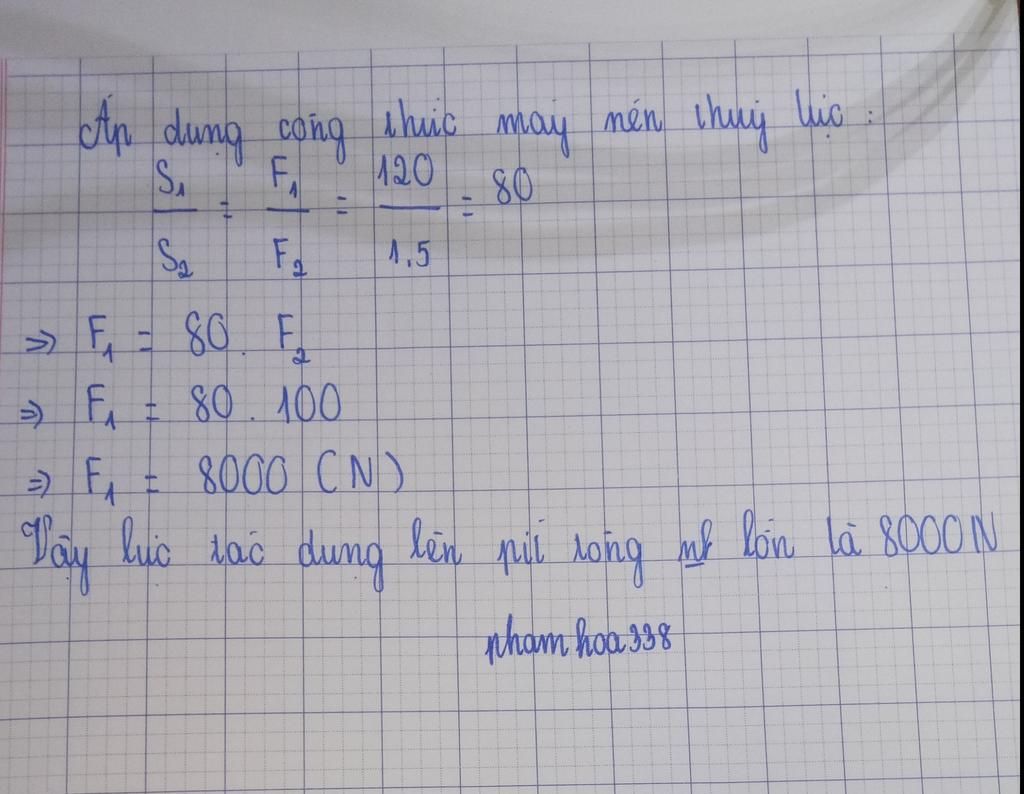 Áp dụng công thức máy nén thuỷ lực :
S₁ / S₂ = F₁ / F₂ = 120 / 1.5 = 80
=> F₁ = 80 . F₂
=> F₁ = 80 . 100
=> F₁ = 8000 (N)
Vậy lực tác dụng lên pít tông lớn là 8000N
phamhoa338